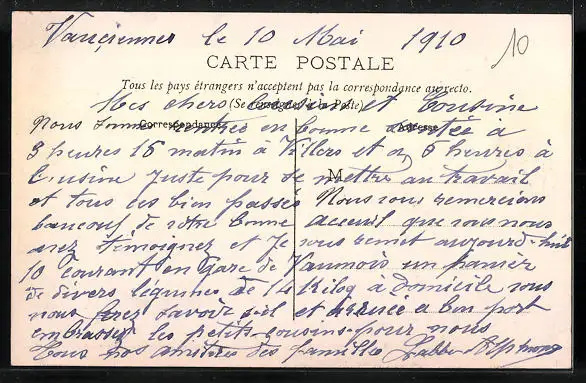 Vauciennes le 10 Mai 1910
10
CARTE POSTALE
Tous les pays étrangers n'acceptent pas la correspondance au recto.
(Se renseigner à la Poste)
Mes chers Cousin et Cousine
Correspondance
Adresse
Nous sommes rentrés en bonne santée à
3 heures 15 matin à Villers et à 5 heures à
M
l'usine juste pour se mettre au travail
et tous ces bien passés Nous vous remercions
baucouf de votre bonne acceuil que vous nous
avez témoignez et je vous remet aujourd'huit
10 courant en Gare de Vaumois un panier
de divers légumes de 14 Kilog à domicile vous
nous ferez savoir s'il et arrisée a bon port
embrasser les petits cousins pour nous
Tous nos amitiées des familles